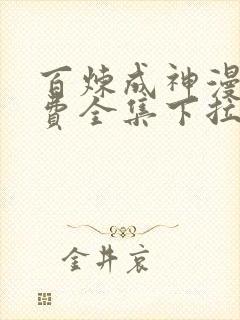 百炼成神漫
费全集下拉
金井哀